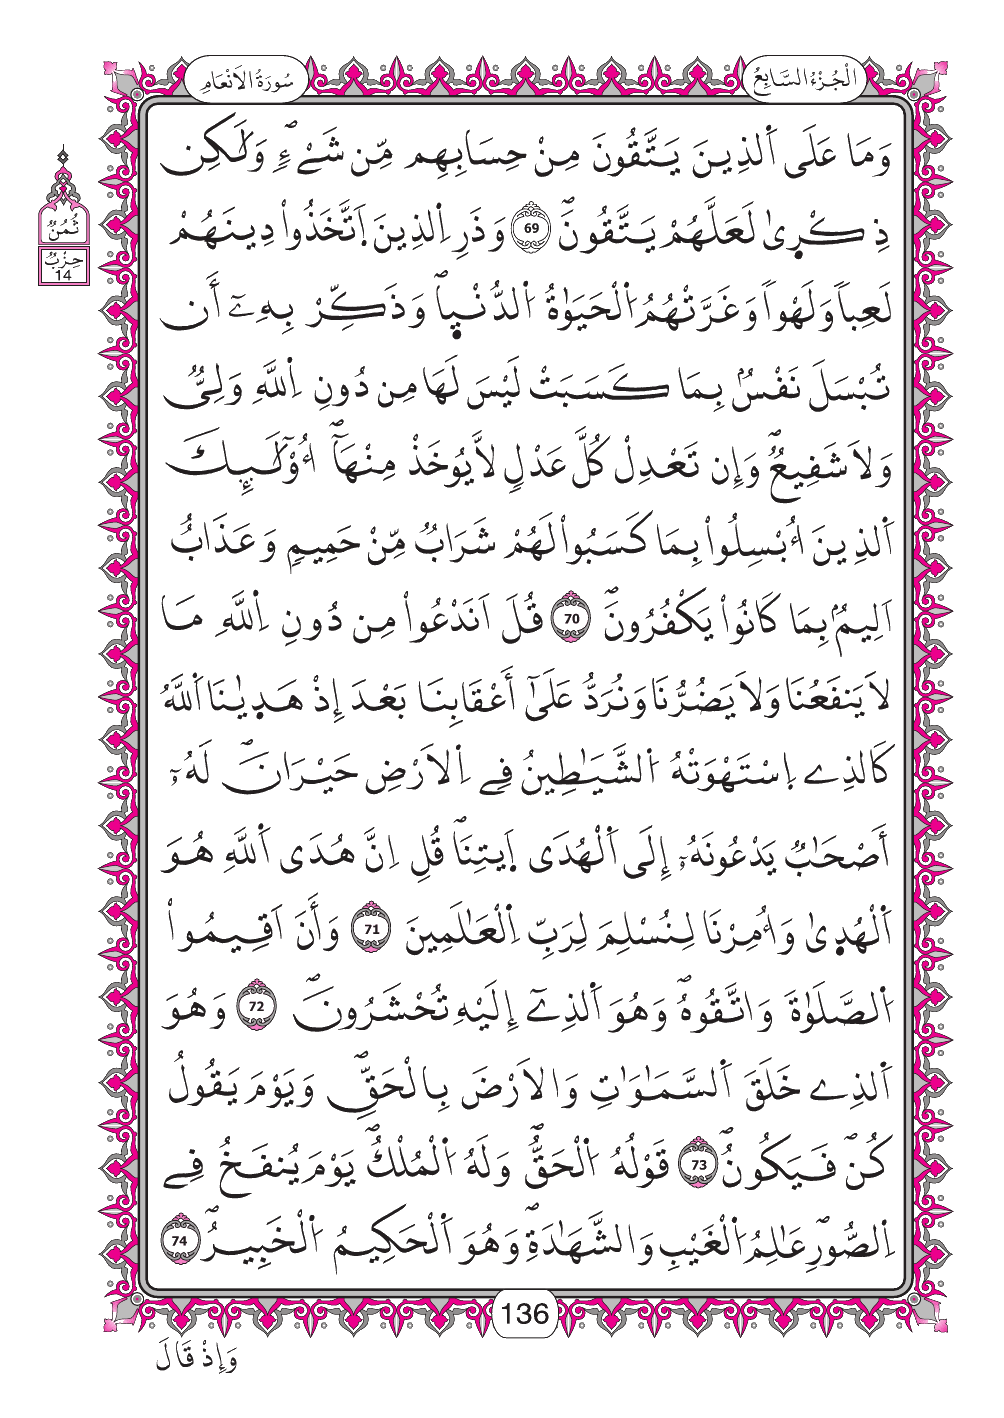 الْجُزْءُ السَّابِعُ
سُورَةُ الَانْعَامِ
وَمَا عَلَى اَ۬لذِينَ يَتَّقُونَ مِنْ حِسَابِهِم مِّن شَےْءٖۖ وَلَٰكِن
ذِكْر۪ىٰ لَعَلَّهُمْ يَتَّقُونَۖ 69 وَذَرِ اِ۬لذِينَ اَ۪تَّخَذُواْ دِينَهُمْ
لَعِباٗ وَلَهْواٗ وَغَرَّتْهُمُ اُ۬لْحَيَوٰةُ اُ۬لدُّنْي۪اۖ وَذَكِّرْ بِهِۦٓ أَن
تُبْسَلَ نَفْسُۢ بِمَا كَسَبَتْ لَيْسَ لَهَا مِن دُونِ اِ۬للَّهِ وَلِيّٞ
وَلَا شَفِيعٞۖ وَإِن تَعْدِلْ كُلَّ عَدْلٖ لَّا يُوخَذْ مِنْهَآۖ أُوْلَٰٓئِكَ
اَ۬لذِينَ أُبْسِلُواْ بِمَا كَسَبُواْ لَهُمْ شَرَابٞ مِّنْ حَمِيمٖ وَعَذَابٌ
اَلِيمُۢ بِمَا كَانُواْ يَكْفُرُونَۖ 70 قُلَ اَنَدْعُواْ مِن دُونِ اِ۬للَّهِ مَا
لَا يَنفَعُنَا وَلَا يَضُرُّنَا وَنُرَدُّ عَلَىٰٓ أَعْقَابِنَا بَعْدَ إِذْ هَد۪يٰنَا اَ۬للَّهُ
كَالذِے اِ۪سْتَهْوَتْهُ اُ۬لشَّيَٰطِينُ فِے اِ۬لَارْضِ حَيْرَانَۖ لَهُۥٓ
أَصْحَٰبٞ يَدْعُونَهُۥٓ إِلَى اَ۬لْهُدَى اَ۪يتِنَاۖ قُلِ اِنَّ هُدَى اَ۬للَّهِ هُوَ
اَ۬لْهُد۪ىٰ وَأُمِرْنَا لِنُسْلِمَ لِرَبِّ اِ۬لْعَٰلَمِينَ 71 وَأَنَ اَقِيمُواْ
اُ۬لصَّلَوٰةَ وَاتَّقُوهُۖ وَهُوَ اَ۬لذِےٓ إِلَيْهِ تُحْشَرُونَۖ 72 وَهُوَ
اَ۬لذِے خَلَقَ اَ۬لسَّمَٰوَٰتِ وَالَارْضَ بِالْحَقِّۖ وَيَوْمَ يَقُولُ
كُنۖ فَيَكُونُۖ 73 قَوْلُهُ اُ۬لْحَقُّۖ وَلَهُ اُ۬لْمُلْكُۖ يَوْمَ يُنفَخُ فِے
اِ۬لصُّورِۖ عَٰلِمُ اُ۬لْغَيْبِ وَالشَّهَٰدَةِۖ وَهُوَ اَ۬لْحَكِيمُ اُ۬لْخَبِيرُۖ 74
ثُمُنٌ
حِزْبٌ
14
136
وَإِذْ قَالَ